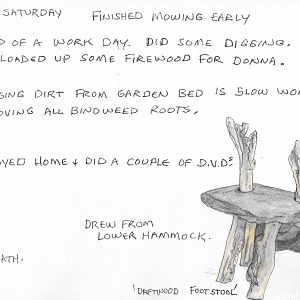 SATURDAY FINISHED MOWING EARLY
OF A WORK DAY. DID SOME DIGGING.
LOADED UP SOME FIREWOOD FOR DONNA.
DIRT FROM GARDEN BED IS SLOW
ALL BINDWEED ROOTS.
HOME + DID A COUPLE OF D.V.D's
DREW FROM
LOWER HAMMOCK.
'DRIFTWOOD FOOTSTOOL'